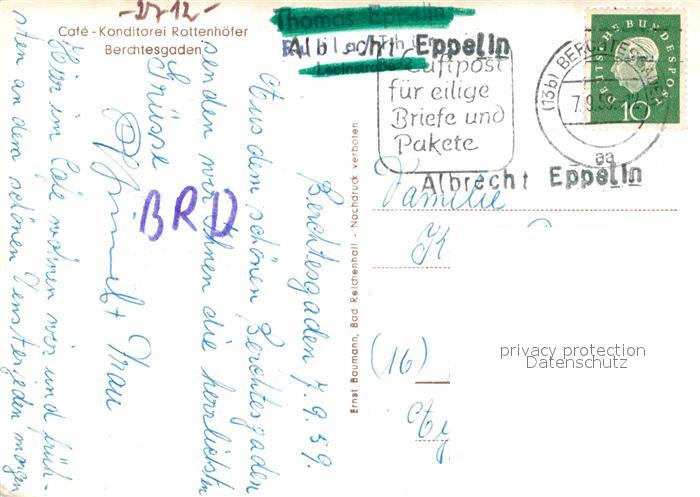 -27-12-
Café - Konditorei Rottenhöfer
Berchtesgaden
Thomas Eppelin
Albrecht Eppelin
Leninstraße
Luftpost
für eilige
Briefe und
Pakete
(13b) BERCHTESGADEN
7.9.59
aa
DEUTSCHE BUNDESPOST
10
Albrecht Eppelin
Berchtesgaden 7.9.59.
Aus dem schönen Berchtesgaden
senden wir Ihnen die herzlichsten
Grüsse
+ Frau
Hier im Cafe wohnen wir und früh-
sten an dem schönen Fenster jeden morgen
BRD
Ernst Baumann, Bad Reichenhall - Nachdruck verboten
Familie
K
(16)
privacy protection
Datenschutz